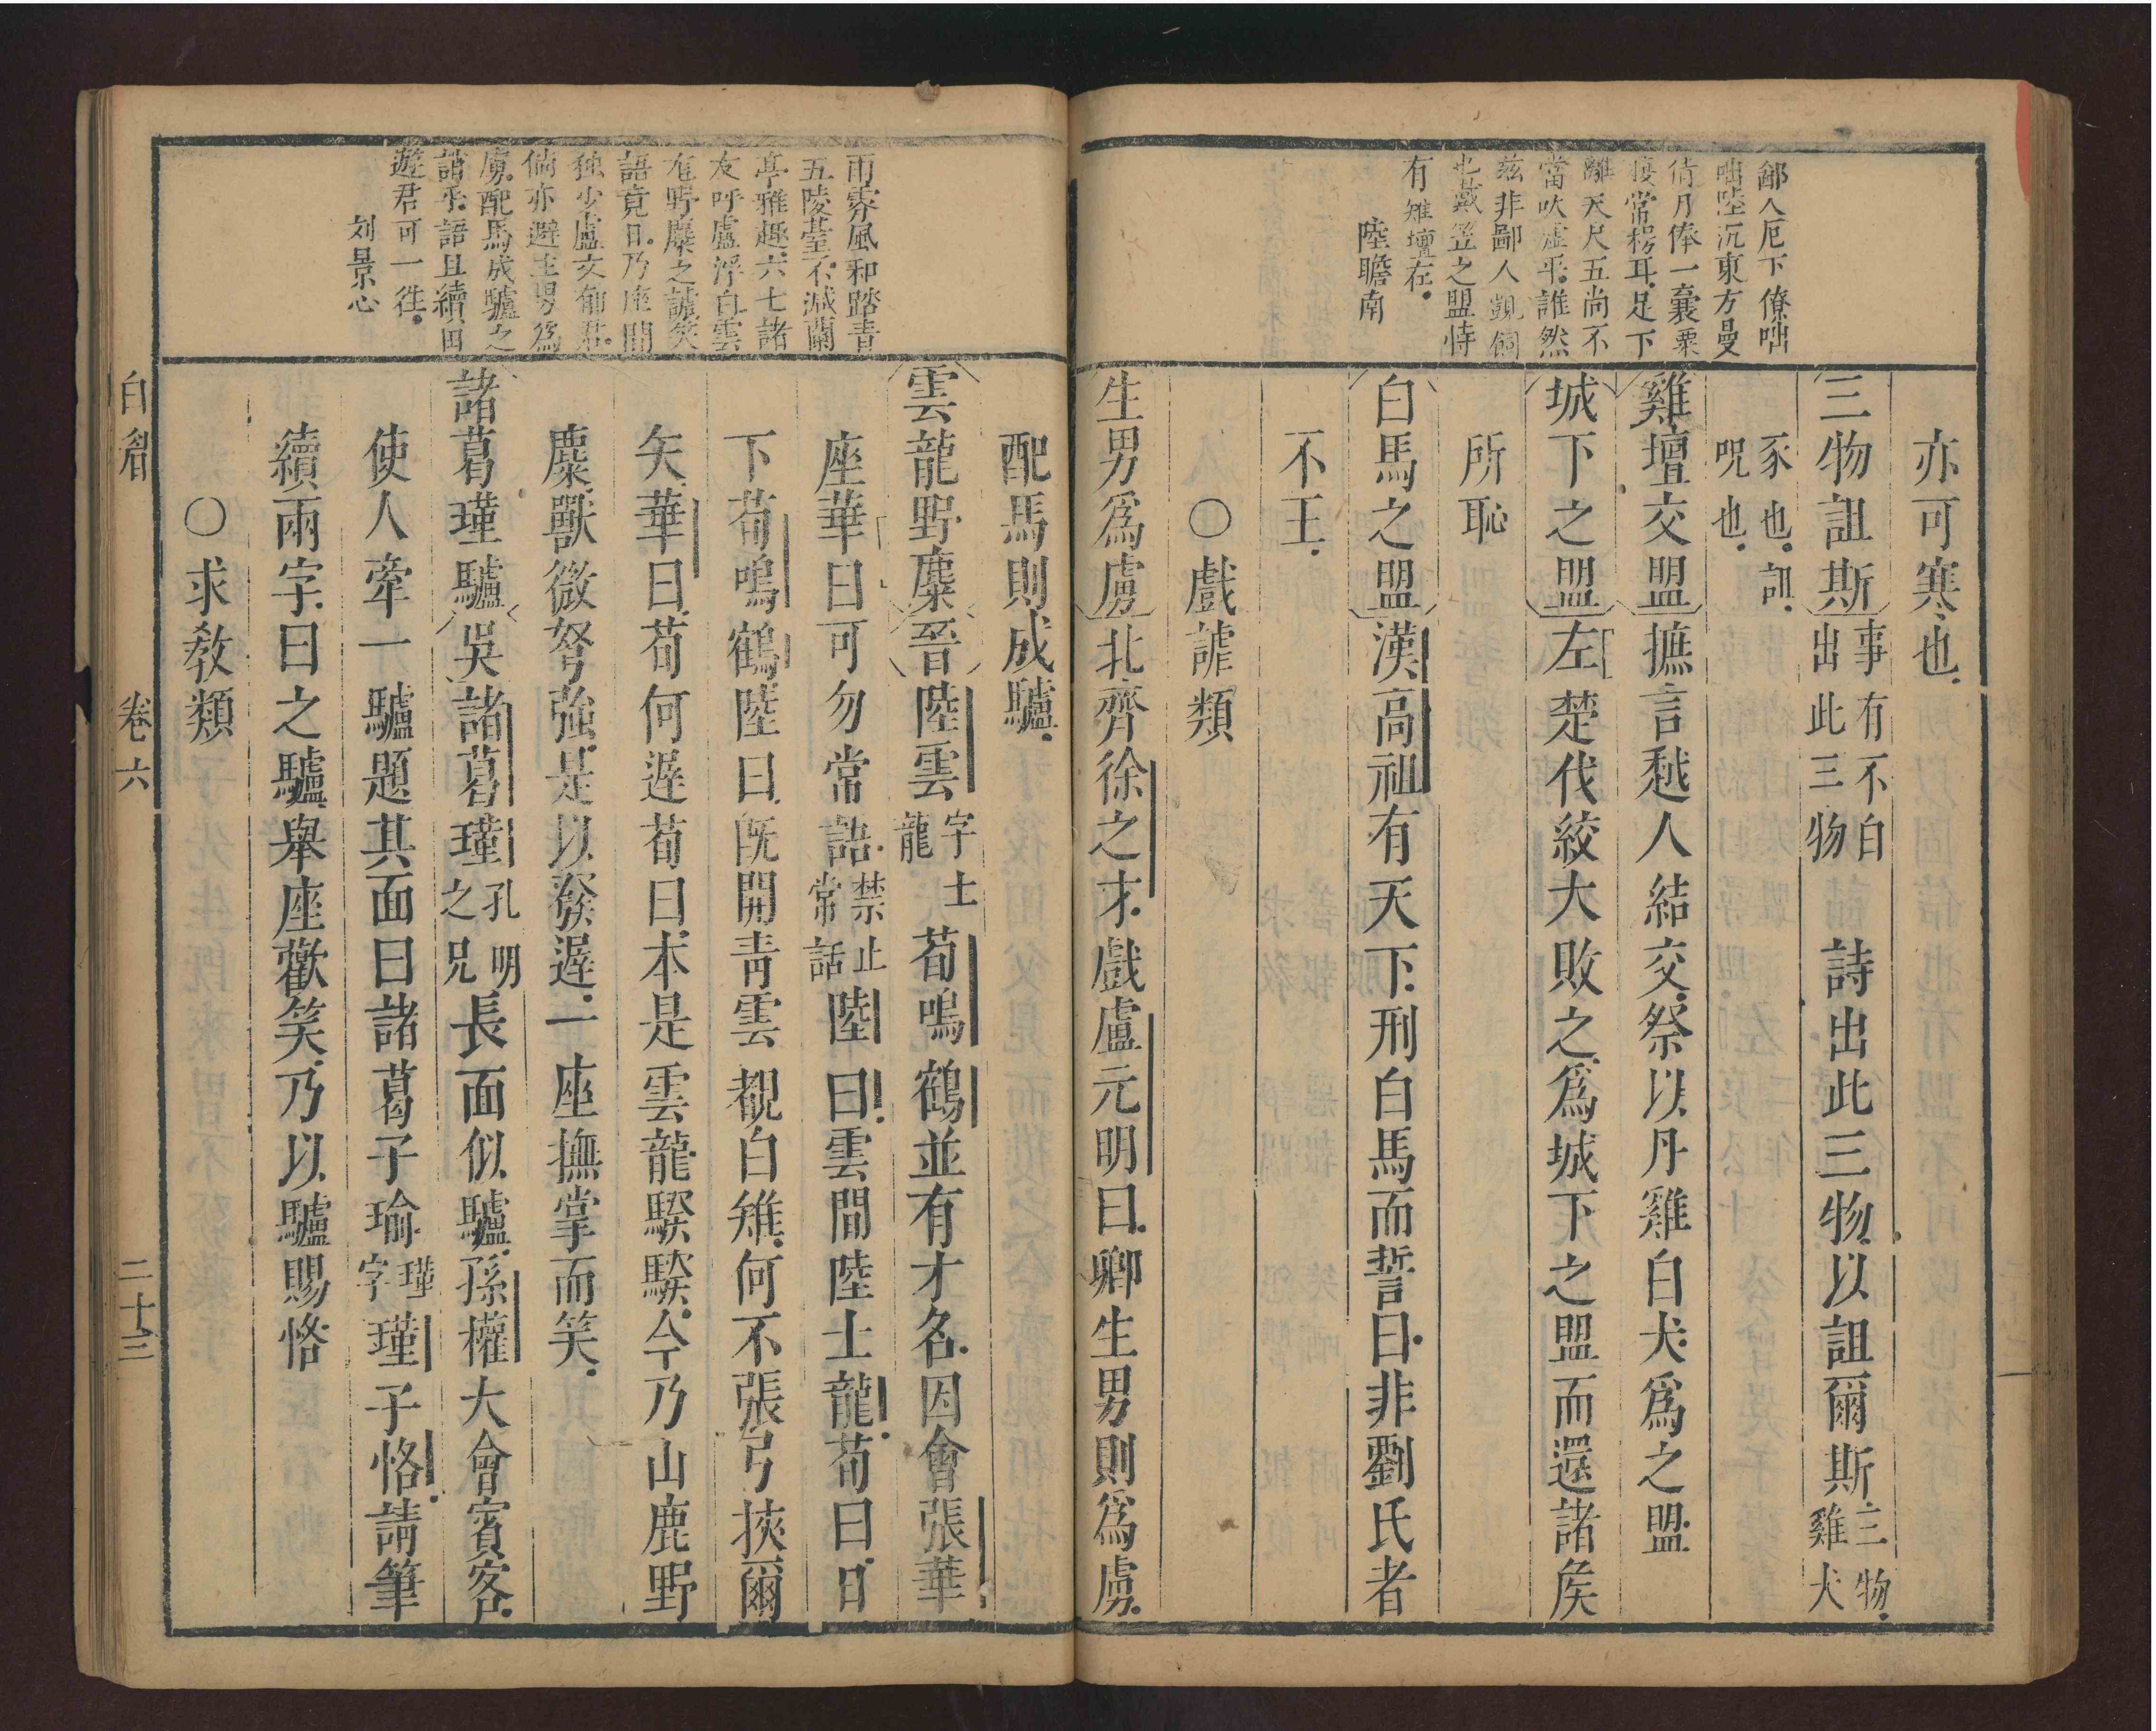 鄙人厄下僚咄
咄陸沉東方曼
倩月俸一囊粟
復常枵耳足下
離天尺五尚不
當吹噓乎誰然
茲非鄙人覬餇
也戴笠之盟恃
有雞壇在
陸瞻南
亦可寒也
三物詛斯事有不白出此三物詩出此三物以詛爾斯三物雞犬
豕也詛呪也
雞壇交盟摭言越人結交祭以丹雞白犬為之盟
城下之盟左楚伐絞大敗之為城下之盟而還諸侯
所恥
白馬之盟漢高祖有天下刑白馬而誓曰非劉氏者
不王
○戲謔類
生男為虜北齊徐之才戲盧元明曰卿生男則為虜
雨霽風和踏青
五陵臺不減蘭
亭雅趣六七諸
友呼盧浮白雲
龍野麋之謔笑
語竟日乃座間
獨少盧文郁君
倘亦避生男為
虜配馬成驢之
誚乎語且續因
遊君可一徃
刘景心
配馬則成驢
雲龍野麋晉陸雲字士龍荀鳴鶴並有才名因會張華
座華曰可勿常語禁止常話陸曰雲間陸士龍荀曰日
下荀鳴鶴陸曰既開青雲覩白雉何不張弓挾爾
矢華曰荀何遲荀曰本是雲龍騤騤今乃山鹿野
麋獸微弩強是以發遲一座撫掌而笑
諸葛瑾驢吳諸葛瑾孔明之兄長面似驢孫權大會賓客
使人牽一驢題其面曰諸葛子瑜瑾字瑾子恪請筆
續兩字曰之驢舉座歡笑乃以驢賜恪
○求教類
白眉
卷六
二十三